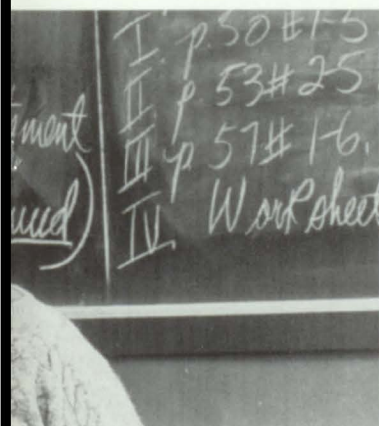 I. p. 50 #1-5
II. p. 53 #2-5
III p 57 # 1-6.
IV. Worksheet